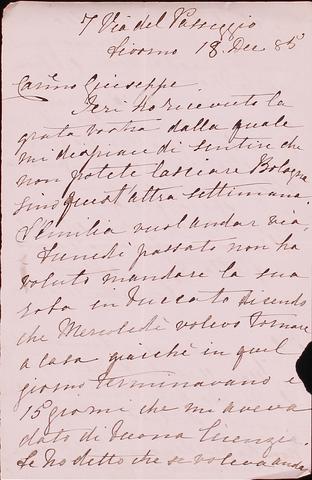 7 Via del Passeggio
Livorno 18 Dec. 85
Carimo Giuseppe.
Ieri ho ricevuto la
grata vostra dalla quale
mi dispiace di sentire che
non potete lasciare Bologna
sino quest'altra settimana.
L'Emilia vuol andar via,
Lunedì passato non ha
voluto mandare la sua
roba in bucato dicendo
che Mercoledì voleva tornare
a casa giacchè in quel
giorno terminavano i
15 giorni che mi aveva
dato di buona licenza.
Le ho detto che se voleva anda